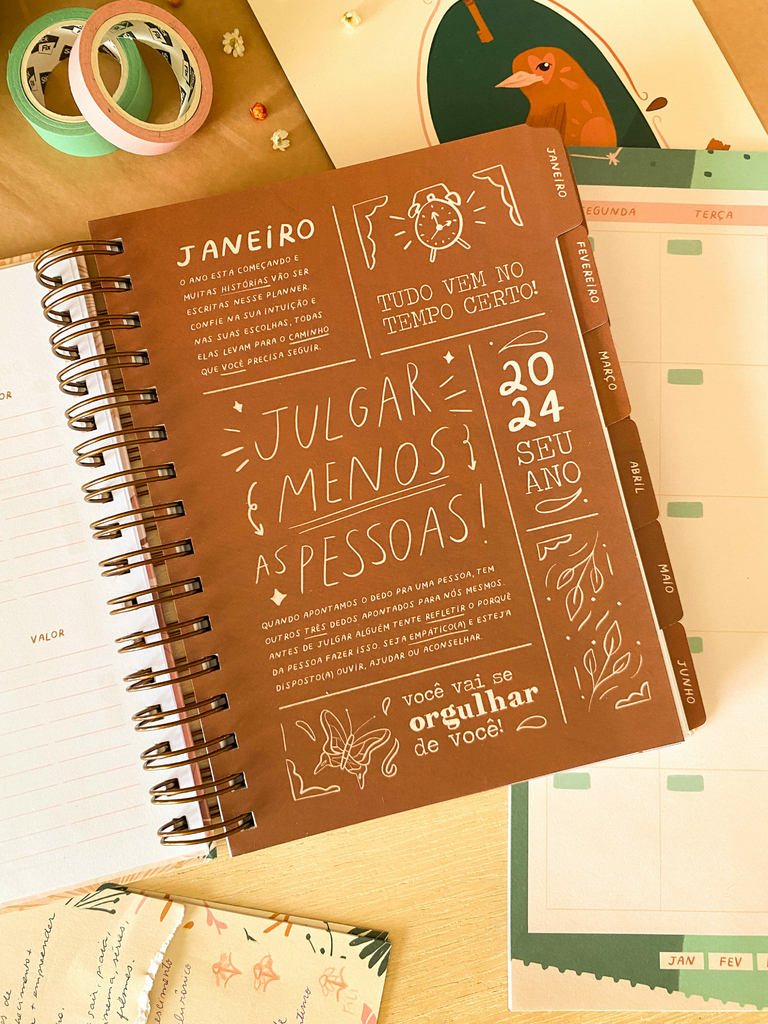 JANEIRO
O ANO ESTÁ COMEÇANDO E
MUITAS HISTÓRIAS VÃO SER
ESCRITAS NESSE PLANNER.
CONFIE NA SUA INTUIÇÃO E
NAS SUAS ESCOLHAS, TODAS
ELAS LEVAM PARA O CAMINHO
QUE VOCÊ PRECISA SEGUIR.
TUDO VEM NO
TEMPO CERTO!
JULGAR
MENOS
AS PESSOAS!
QUANDO APONTAMOS O DEDO PRA UMA PESSOA, TEM
OUTROS TRÊS DEDOS APONTADOS PARA NÓS MESMOS.
ANTES DE JULGAR ALGUÉM TENTE REFLETIR O PORQUÊ
DA PESSOA FAZER ISSO. SEJA EMPÁTICO(A) E ESTEJA
DISPOSTO(A) OUVIR, AJUDAR OU ACONSELHAR.
20
24
SEU
ANO
você vai se
orgulhar
de você!
JANEIRO
FEVEREIRO
MARÇO
ABRIL
MAIO
JUNHO
EGUNDA
TERÇA
OR
VALOR
JAN
FEV
Fix
hecimento +
+ empreender
sair, praia,
nema, séries,
filmes.